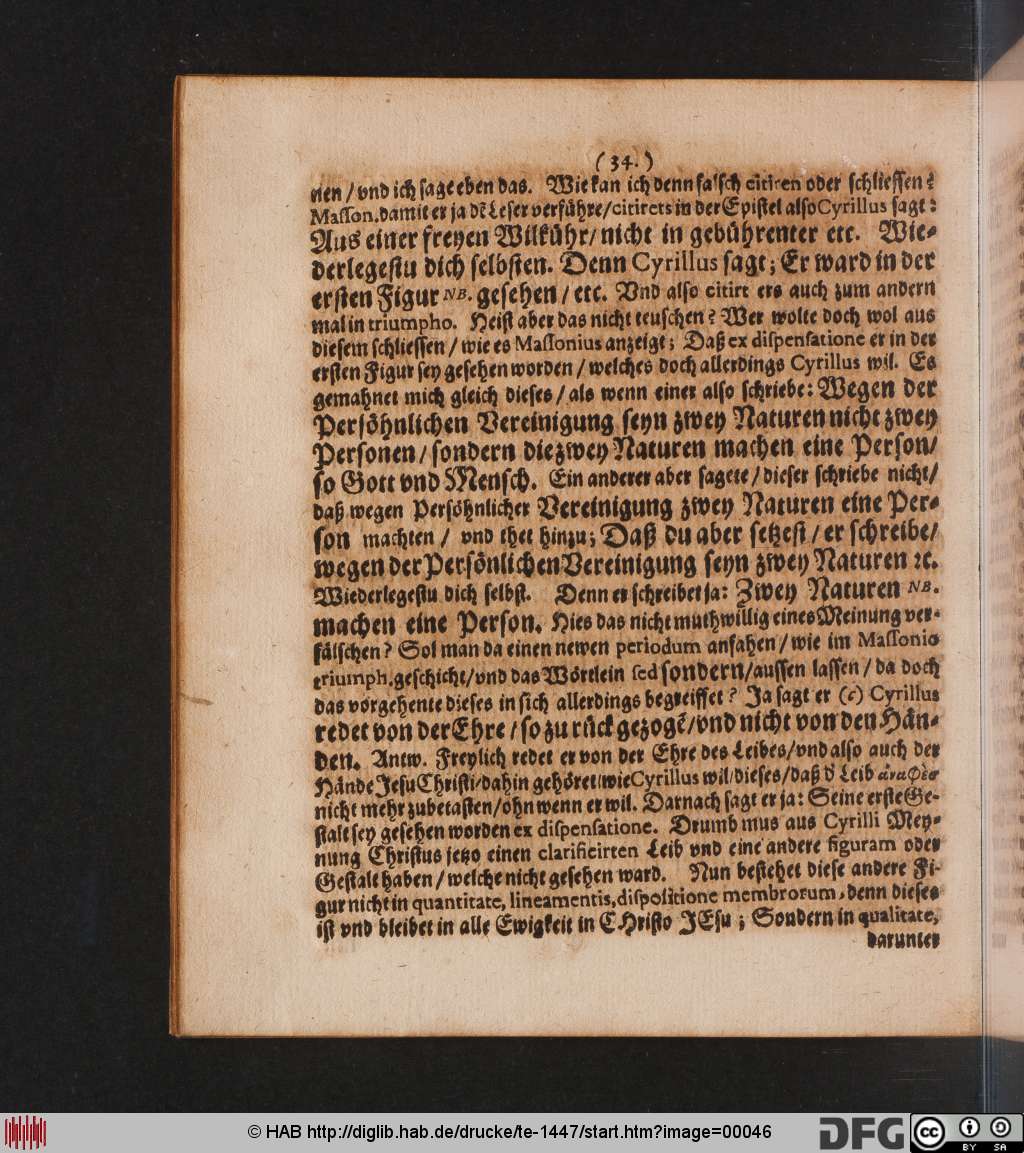 (34.)
nen / vnd ich sage eben das. Wie kan ich denn falsch citiren oder schliessen?
Masson. damit er ja dē Leser verführe / citirets in der Epistel also Cyrillus sagt:
Aus einer freyen Wilkühr / nicht in gebührenter etc. Wie-
derlegestu dich selbsten. Denn Cyrillus sagt; Er ward in der
ersten Figur NB. gesehen / etc. Vnd also citirt ers auch zum andern
mal in triumpho. Heist aber das nicht teuschen? Wer wolte doch wol aus
diesem schliessen / wie es Massonius anzeigt; Daß ex dispensatione er in der
ersten Figur sey gesehen worden / welches doch allerdings Cyrillus wil. Es
gemahnet mich gleich dieses / als wenn einer also schriebe: Wegen der
Persöhnlichen Vereinigung seyn zwey Naturen nicht zwey
Personen / sondern die zwey Naturen machen eine Person /
so Gott vnd Mensch. Ein anderer aber sagete / dieser schriebe nicht /
daß wegen Persöhnlicher Vereinigung zwey Naturen eine Per-
son machten / vnd thet hinzu; Daß du aber setzest / er schreibe /
wegen der Persönlichen Vereinigung seyn zwey Naturen ꝛc.
Wiederlegestu dich selbst. Denn er schreibet ja: Zwey Naturen NB.
machen eine Person. Hies das nicht muthwillig eines Meinung ver-
fälschen? Sol man da einen newen periodum anfahen / wie im Massonio
triumph. geschicht / vnd das Wörtlein sed sondern / aussen lassen / da doch
das vorgehente dieses in sich allerdings begreiffet? Ja sagt er (c) Cyrillus
redet von der Ehre / so zu rück gezogē / vnd nicht von den Hän-
den. Antw. Freylich redet er von der Ehre des Leibes / vnd also auch der
Hände Jesu Christi / dahin gehöret (wie Cyrillus wil) dieses / daß d' Leib ἀναφὲσ
nicht mehr zubetasten / ohn wenn er wil. Darnach sagt er ja: Seine erste Ge-
stalt sey gesehen worden ex dispensatione. Drumb mus aus Cyrilli Mey-
nung Christus jetzo einen clarificirten Leib vnd eine andere figuram oder
Gestalt haben / welche nicht gesehen ward. Nun bestehet diese andere Fi-
gur nicht in quantitate, lineamentis, dispositione membrorum, denn dieses
ist vnd bleibet in alle Ewigkeit in CHristo JEsu; Sondern in qualitate,
darunter
© HAB http://diglib.hab.de/drucke/te-1447/start.htm?image=00046
DFG
cc
BY SA